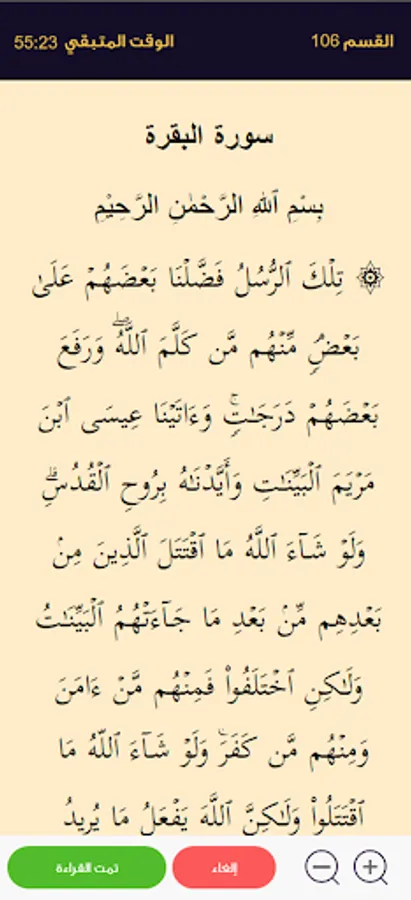 القسم 106
الوقت المتبقي 55:23
سورة البقرة
بِسْمِ ٱللَّهِ الرَّحْمَٰنِ الرَّحِيْمِ
۞ تِلْكَ ٱلرُّسُلُ فَضَّلْنَا بَعْضَهُمْ عَلَىٰ
بَعْضٍۢ مِّنْهُم مَّن كَلَّمَ ٱللَّهُۖ وَرَفَعَ
بَعْضَهُمْ دَرَجَٰتٍۚ وَءَاتَيْنَا عِيسَى ٱبْنَ
مَرْيَمَ ٱلْبَيِّنَٰتِ وَأَيَّدْنَٰهُ بِرُوحِ ٱلْقُدُسِۗ
وَلَوْ شَآءَ ٱللَّهُ مَا ٱقْتَتَلَ ٱلَّذِينَ مِنۢ
بَعْدِهِم مِّنۢ بَعْدِ مَا جَآءَتْهُمُ ٱلْبَيِّنَٰتُ
وَلَٰكِنِ ٱخْتَلَفُوا۟ فَمِنْهُم مَّنْ ءَامَنَ
وَمِنْهُم مَّن كَفَرَۚ وَلَوْ شَآءَ ٱللَّهُ مَا
ٱقْتَتَلُوا۟ وَلَٰكِنَّ ٱللَّهَ يَفْعَلُ مَا يُرِيدُ
إلغاء
تمت القراءة